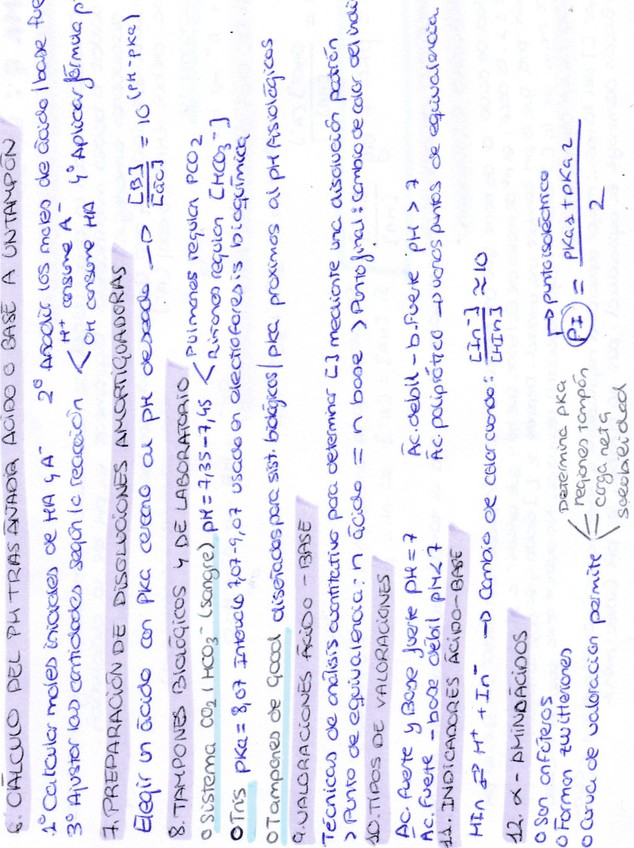 6. CÁLCULO DEL PH TRAS AÑADIR ÁCIDO O BASE A UN TAMPÓN
1º Calcular moles iniciales de HA y A⁻ 2º Añadir los moles de ácido / base fue
3º Ajustar las cantidades según la reacción < H⁺ consume A⁻
OH consume HA 4º Aplicar fórmula p
7. PREPARACIÓN DE DISOLUCIONES AMORTIGUADORAS
Elegir un ácido con pKa cercano al pH deseado → [B]/[ác] = 10^(pH-pKa)
8. TAMPONES BIOLÓGICOS Y DE LABORATORIO
o Sistema CO₂ / HCO₃⁻ (sangre) pH = 7,35-7,45 < Pulmones regulan PCO₂
Riñones regulan [HCO₃⁻]
o Tris pKa = 8,07 Intervalo 7,07-9,07 usado en electroforesis bioquímica
o Tampones de Good diseñados para sist. biológicos / pKa próximos al pH fisiológicos
9. VALORACIONES ÁCIDO-BASE
Técnicas de análisis cuantitativo para determinar [ ] mediante una disolución patrón
> Punto de equivalencia: n ácido = n base > Punto final: cambio de color del indi
10. TIPOS DE VALORACIONES
Ác. fuerte y Base fuerte pH = 7 Ác. debil - b. fuerte pH > 7
Ác. fuerte - base debil pH < 7 Ác. poliprótico → varios puntos de equivalencia
11. INDICADORES ÁCIDO-BASE
HIn ⇄ H⁺ + In⁻ → Cambio de color cuando: [In⁻]/[HIn] ≈ 10
12. α-AMINOÁCIDOS
o Son anfóteros
o Forman zwitteriones
o Curva de valoración permite < Determina pKa
regiones tampón
carga neta
solubilidad
→ punto isoeléctrico
PI = pKa1 + pKa2 / 2